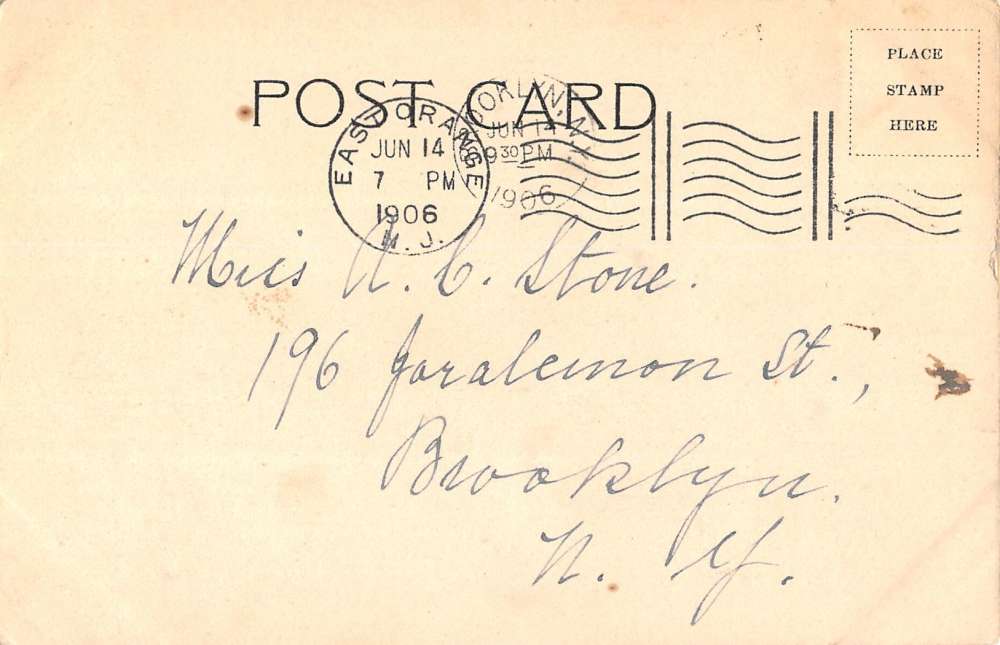 POST CARD
PLACE
STAMP
HERE
EAST ORANGE
JUN 14
7 PM
1906
N. J.
BROOKLYN, N.Y.
JUN 14
9 30 PM
1906
Miss A. C. Stone.
196 Joralemon St.,
Brooklyn.
N. Y.